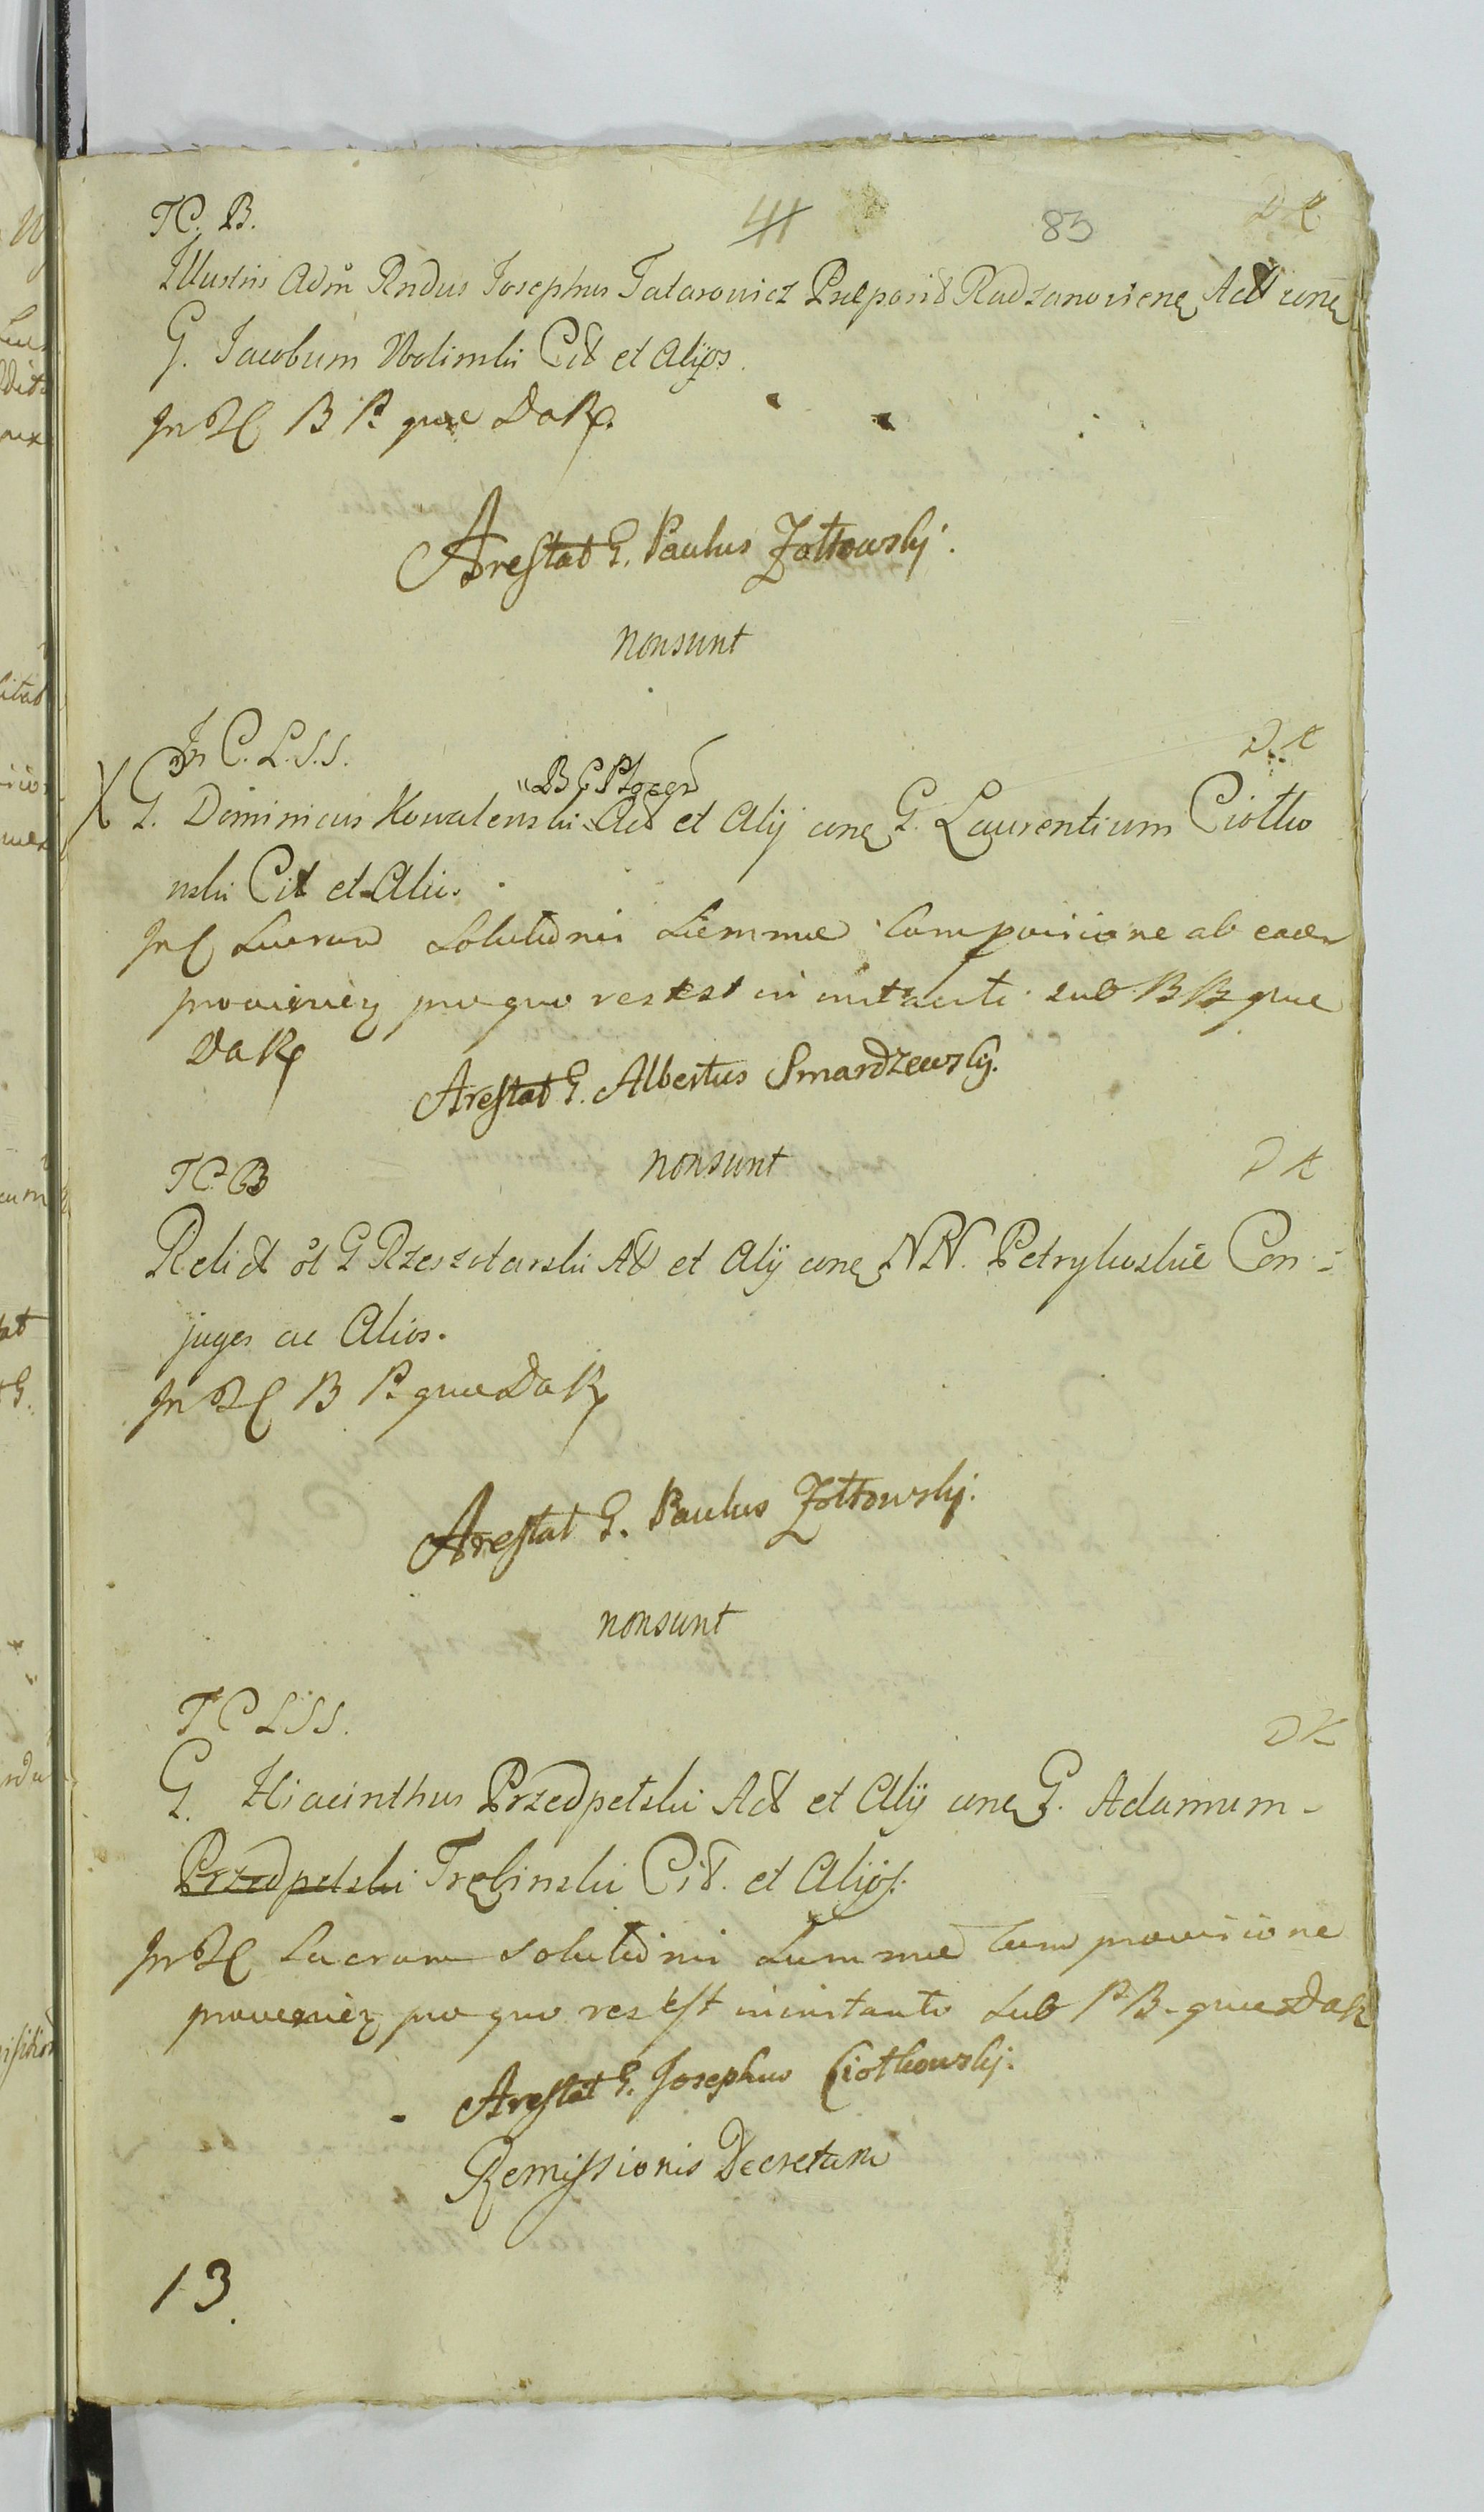 TC. B.
41 83 DK
Illustris Adm Rndus Josephus Tatarowicz Præposit Radzanoviens Act cone
G. Jacobum Wolinski Cit et Alijos
In TC B P. quæ DaR.
Arestat G. Paulus Zołtowskj.
nonsunt
In C. L. S. S. DK
B C Plocen
X G. Dominicus Kowalewski Act et Alij cone G. Laurentium Ciołko
wski Cit et Alios.
Lucrum Solutionis Summæ cum provisione ab eade
provenien pro quo res est in instanti sub P B quæ
DaR
Arestat G. Albertus Smardzewskj.
nonsunt
TC. B DK
Relict ol G Rzeszotarski Act et Alij cone NN. Petrykoskie Con-
juges ac Alios.
In TC B P. quæ DaR
Arestat G. Paulus Zołtowskj.
nonsunt
TC LSS. DK
G. Hiacinthus Przedpełski Act et Alij cone G. Adamum
Przedpelski Trębinski Cit. et Alijos.
In TC Lucrum Solutionis Summæ cum provisione
provenien pro quo res est in instanti sub P B. quæ DaR
Arestat G. Josephus Ciołkowskj.
Remissionis Decretum
13.